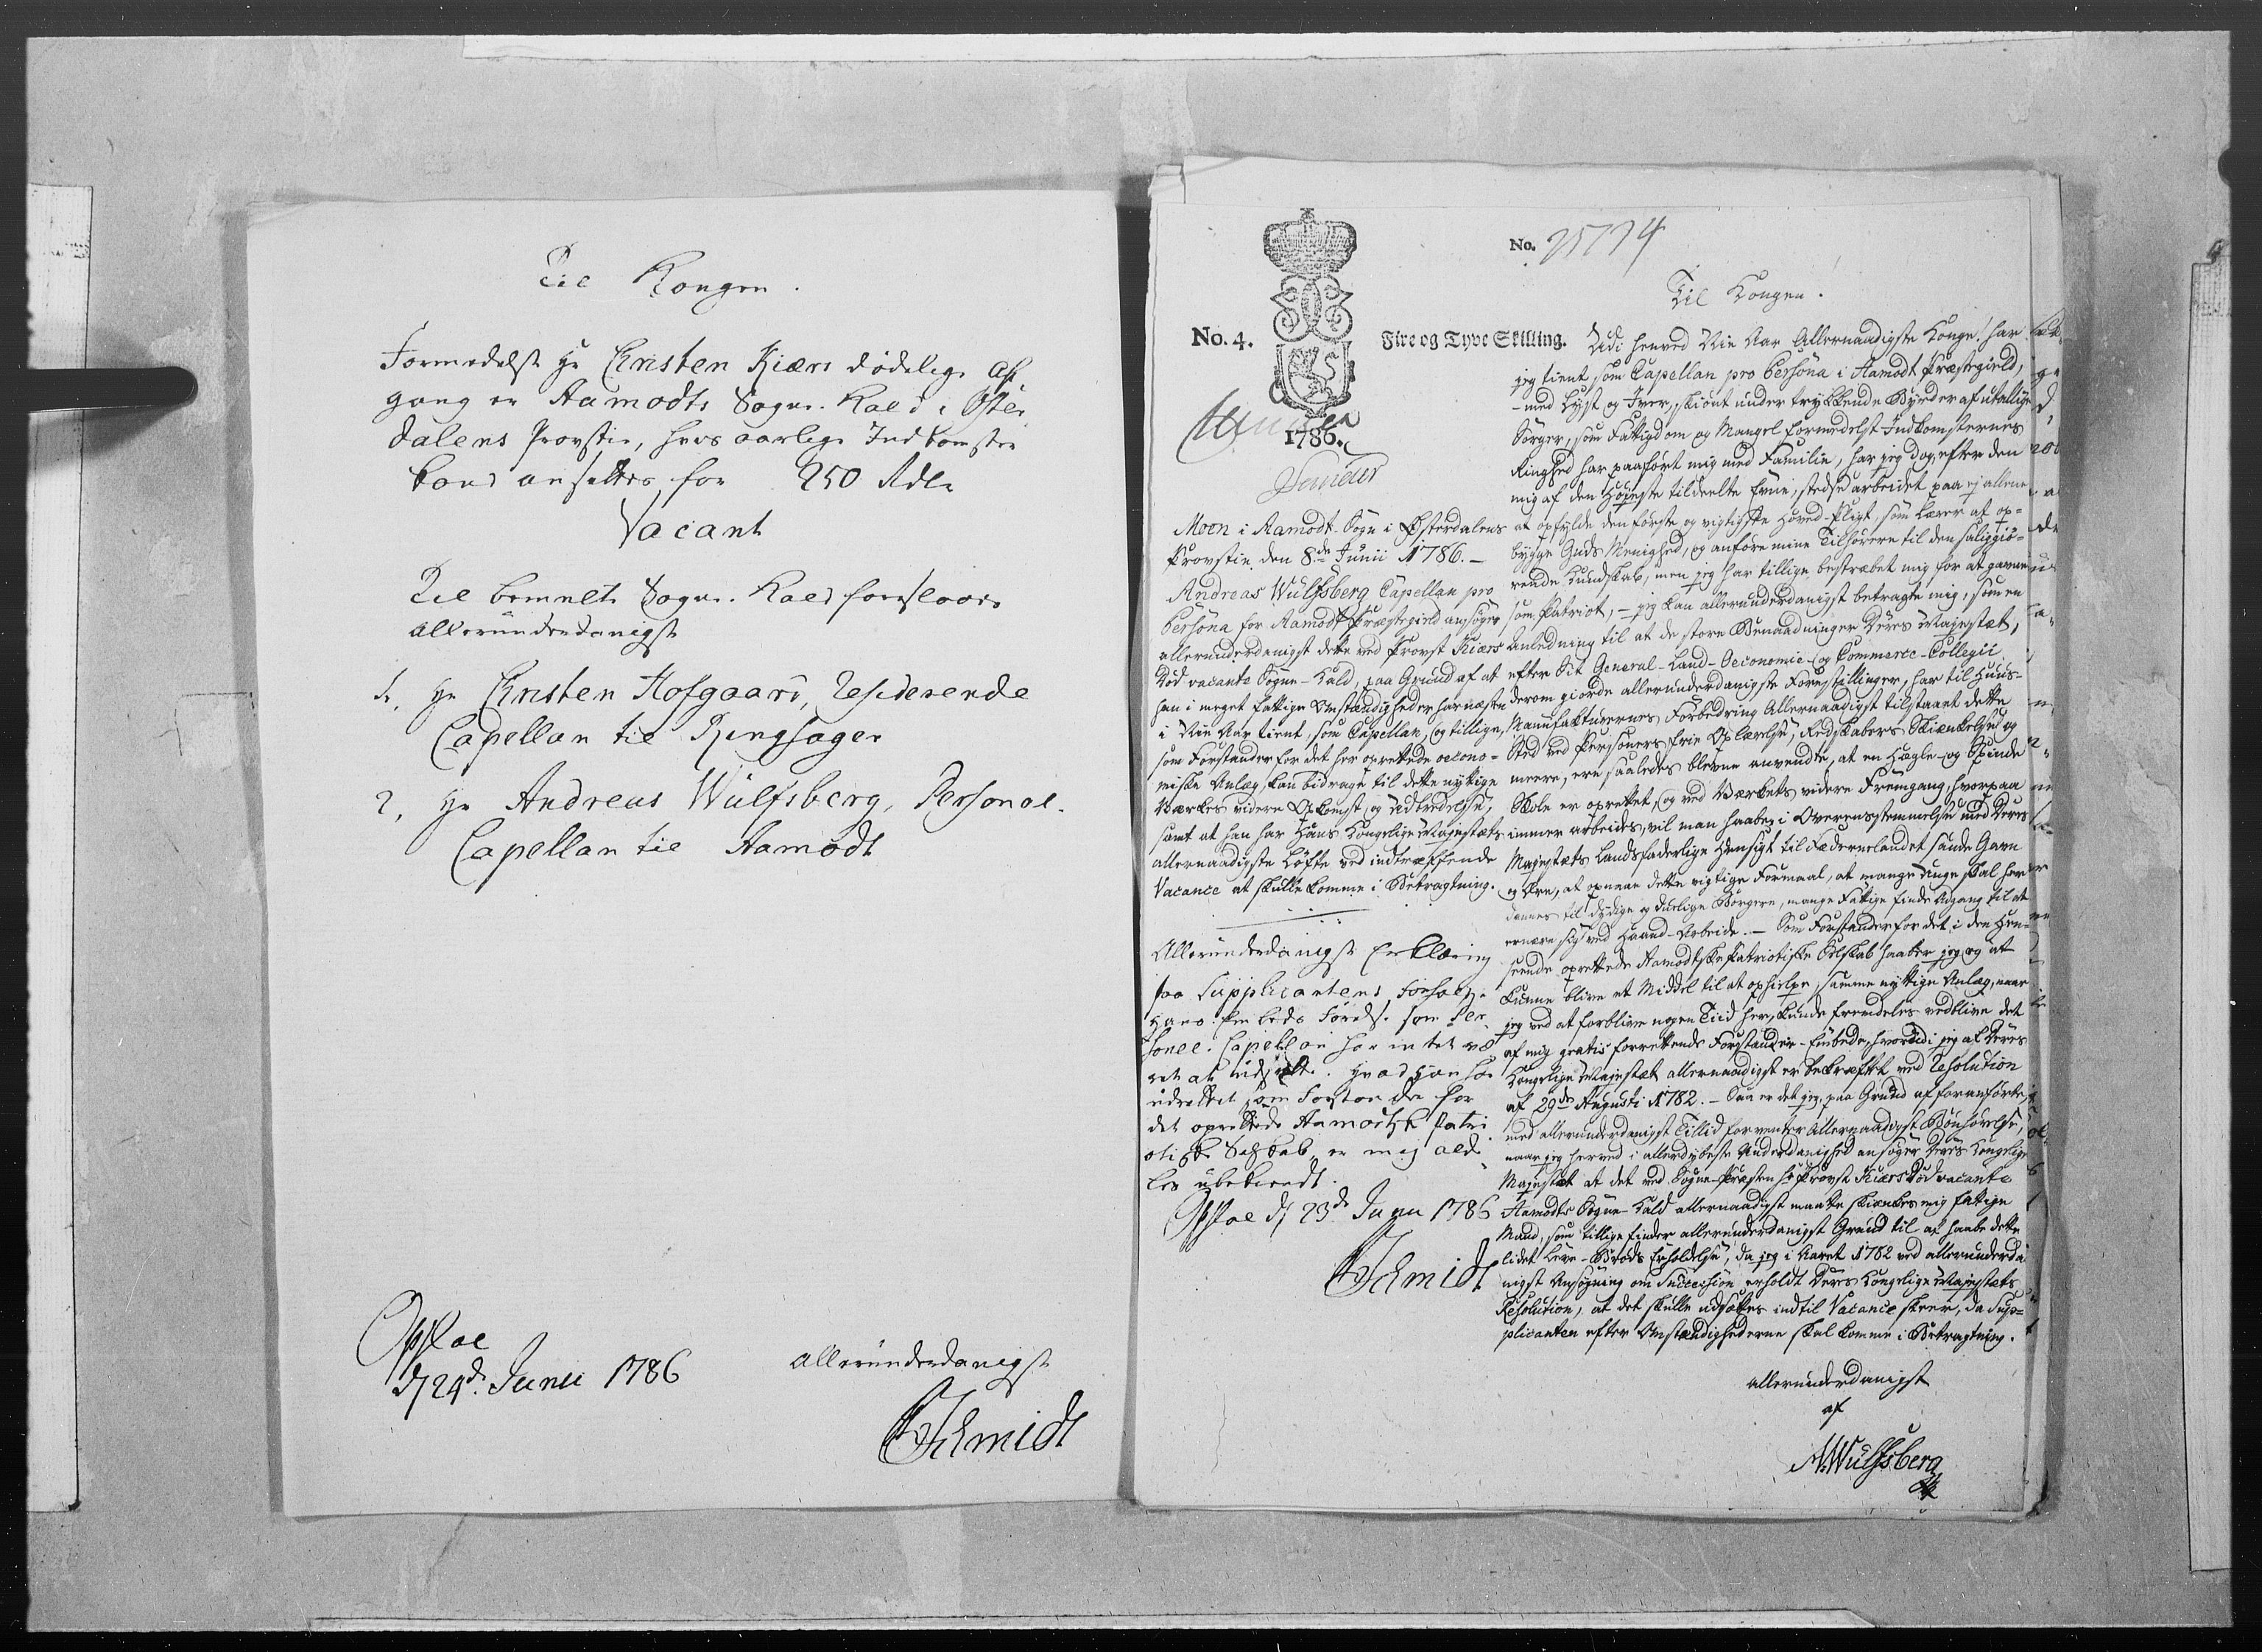 Til Kongen.
Formedelst Hr Christen Kiærs dødelige Af
gang er Aamodts Sogne-Kald i Øster
dalens Provstie, hvis aarlige Indkomster
kand ansættes for 250 Rdlr
Vacant
Til bemelte Sogne-Kald foreslaaes
allerunderdanigst
1, Hr Christen Hofgaard, Residerende
Capellan til Ringsager
2, Hr Andreas Wulfsberg, Personel-
Capellan til Aamodt
Opsloe
d 24d. Junii 1786
allerunderdanigst
Schmidt
No. 25174
No. 4.
Fire og Tyve Skilling.
1786.
Moen i Aamodt-Sogn i Østerdalens
Provstie den 8de Junii 1786.-
Andreas Wulfsberg Capellan pro
Persona for Aamodt Præstegield ansøger
allerunderdanigst dette ved Provst Kiærs
Død vacante Sogne-Kald, paa Grund af at
han i meget fattige Omstændigheder har næsten
i Nie Aar tient, som Capellan, og tillige,
som Forstander for det her oprettede oecono-
miske Anlæg, kan bidrage til dette nyttige
Værkes videre Opkomst og Udbredelse,
samt at han har Hans Kongelige Majestæts
allernaadigste Løfte ved indtræffende
Vacance at skulle komme i Betragtning.
Allerunderdanigst Erklæring
paa Supplicantens Forhold i
Hans Embeds Førelse som Per
sonel-Capellan har intet væ
ret at udsætte. Hvad Han har
udrettet som Forstander for
det oprettede Aamodtske Patri
otiske Selskab, er mig alde
les ubekiendt.
Opsloe d 23d Junii 1786
Schmidt
Til Kongen.
Udi henved Nie Aar Allernaadigste Konge! har
jeg tient som Capellan pro Persona i Aamodt Præstegield,
- med Lyst og Iver, skiønt under trykkende Byrder af utallige
Sorger, som Fattigdom og Mangel formedelst Indkomsternes
Ringhed har paaført mig med Familie, har jeg dog, efter den
mig af den Høyeste tildeelte Evne, stedse arbeidet paa ej allene
at opfylde den første og vigtigste Hoved-Pligt, som Lærer at op-
bygge Guds Menighed, og anføre mine Tilhørere til den saliggiø-
rende Kundskab, men jeg har tillige bestræbet mig for at gavne
som Patriot, - jeg kan allerunderdanigst betragte mig, som en
Anledning til at de store Benaadninger Deres Majestæt,
efter Dit General-Land-Oeconomie- og Commerce-Collegii
derom giorde allerunderdanigste Forestillinger, har til Huus-
Manufakturernes Forbedring Allernaadigst tilstaaet dette
Sted ved Personers frie Oplærelse, Redskabers Skienkelse og
meere, ere saaledes blevne anvendte, at en Hægle- og Spinde
Skole er oprettet, og ved Værkets videre Fremgang, hvorpaa
immer arbeides, vil man haabe, i Overensstemmelse med Deres
Majestæts Landsfaderlige Hensigt til Fædernelandet sande Gavn
og Ære, at opnaae dette vigtige Formaal, at mange unge skal her
dannes til dydige og duelige Borgere, mange Fattige finde Adgang til at
ernære sig ved Haand-Arbeide. - Som Forstander for det i den Hen-
seende oprettede Aamodtske Patriotiske Selskab haaber jeg og at
kunne blive et Middel til at ophielpe samme nyttige Anlæg, naar
jeg ved at forblive nogen Tiid her, kunde fremdeles vedblive det
af mig gratis forrettende Forstander-Embede, hvorudi jeg af Deres
Kongelige Majestæt allernaadigst er bekræftet ved Resolution
af 29de Augusti 1782. - Saa er det jeg, paa Grund af foranførte,
med allerunderdanigst Tillid forventer Allernaadigst Bønhørelse,
naar jeg herved i allerdybeste Underdanighed ansøger Deres Kongelige
Majestæt at det ved Sogne-Præsten Hr Provst Kiærs Død vacante
Aamodts Sogne-Kald allernaadigst maatte skienkes mig fattige
Mand, som tillige finder allerunderdanigst Grund til at haabe dette
lidet Leve-Brøds Erholdelse, da jeg i Aaret 1782 ved allerunderda-
nigst Ansøgning om Succession erholdt Deres Kongelige Majestæts
Resolution, at det skulle udsættes indtil Vacance skeer, da Sup-
plicanten efter Omstændighederne skal komme i Betragtning.
allerunderdanigst
af
A. Wulfsberg